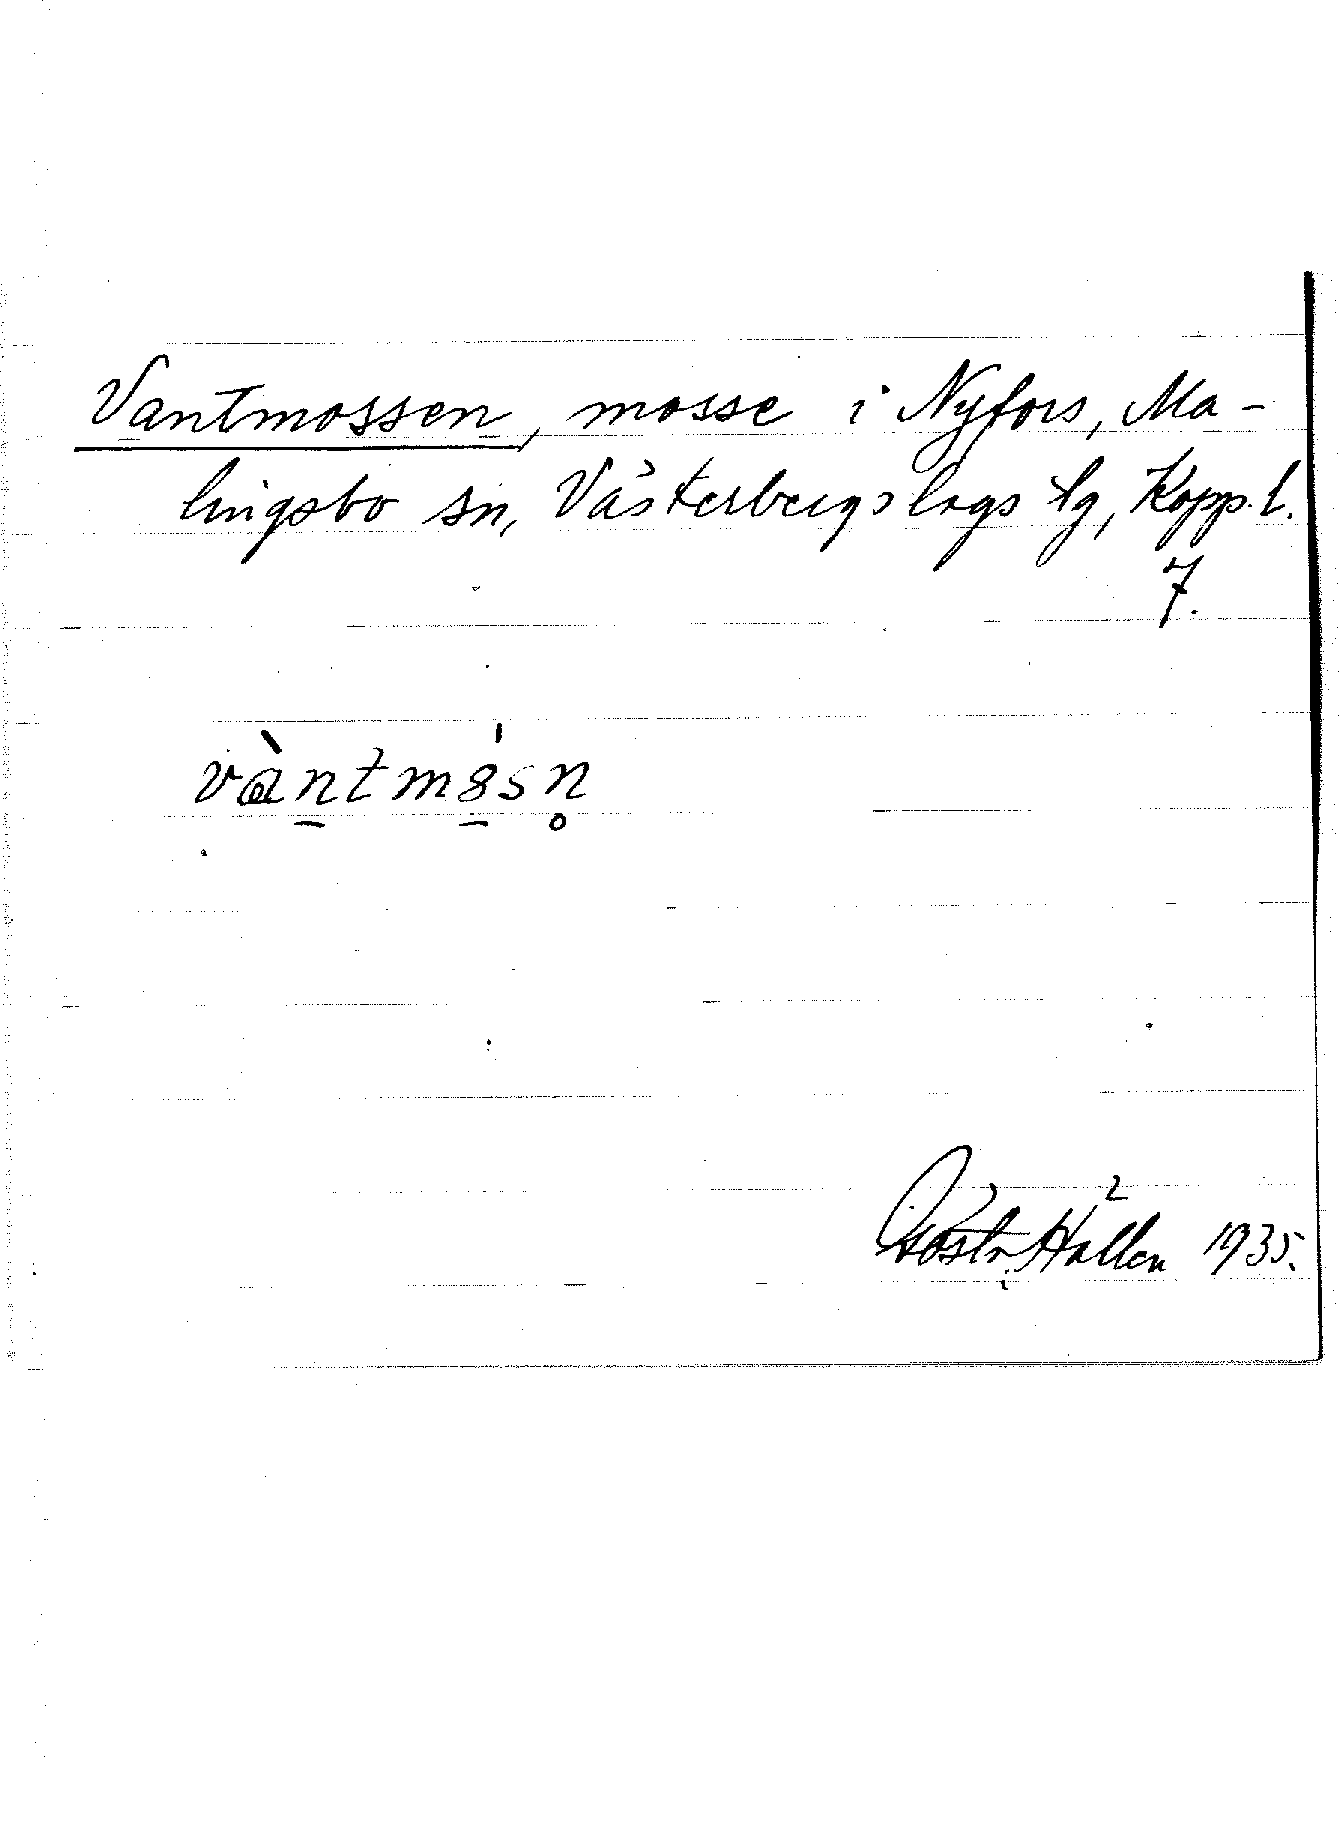 Vantmossen, mosse i Nyfors, Ma-
lingsbo sn, Västerbergslags tg, Kopp. l.
7.
vàntmósn̥
Hållén 1935.